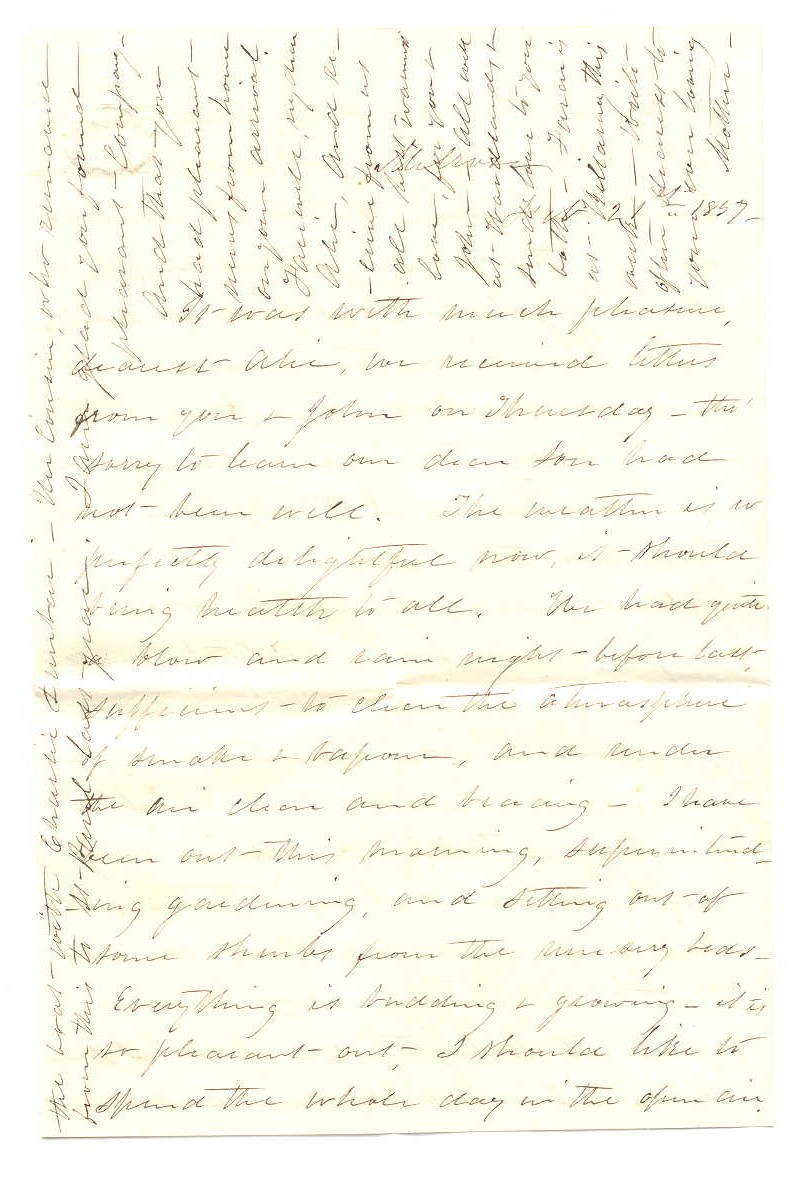 21st 1857-
It was with much pleasure,
dearest Alie, we received letters
from you & John on Thursday - tho'
sorry to learn our dear son had
not been well. The weather is so
perfectly delightful now, it should
bring health to all. We had quite
a blow and rain night before last,
sufficient to clear the atmosphere
of smoke & vapour, and render
the air clear and bracing - I have
been out this morning, superintend-
ing gardening, and setting out of
some shrubs from the nursery beds -
Everything is budding & growing - it is
so pleasant out, I should like to
spend the whole day in the open air.
the boat with Charlie - Her Cousin, who
from this to last year. I am glad you found
pleasant Company -
And that you
had pleasant
news from home
on your arrival.
Farewell, my dear
Alie, And be-
lieve from us
all best warmest
love, for you &
John - All well
at Woodlands &
send love to you
both -
at Williams this
week - Write
often Dearest to
your own loving
Mother -